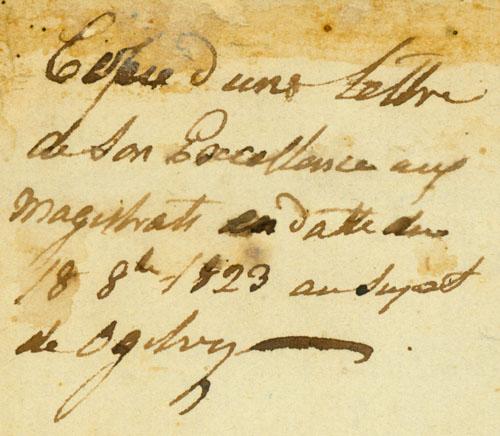 Copie d'une Lettre
de Son Excellence aux
Magistrats en Datte du
18 8bre 1823 au Sujet
de Ogilvy